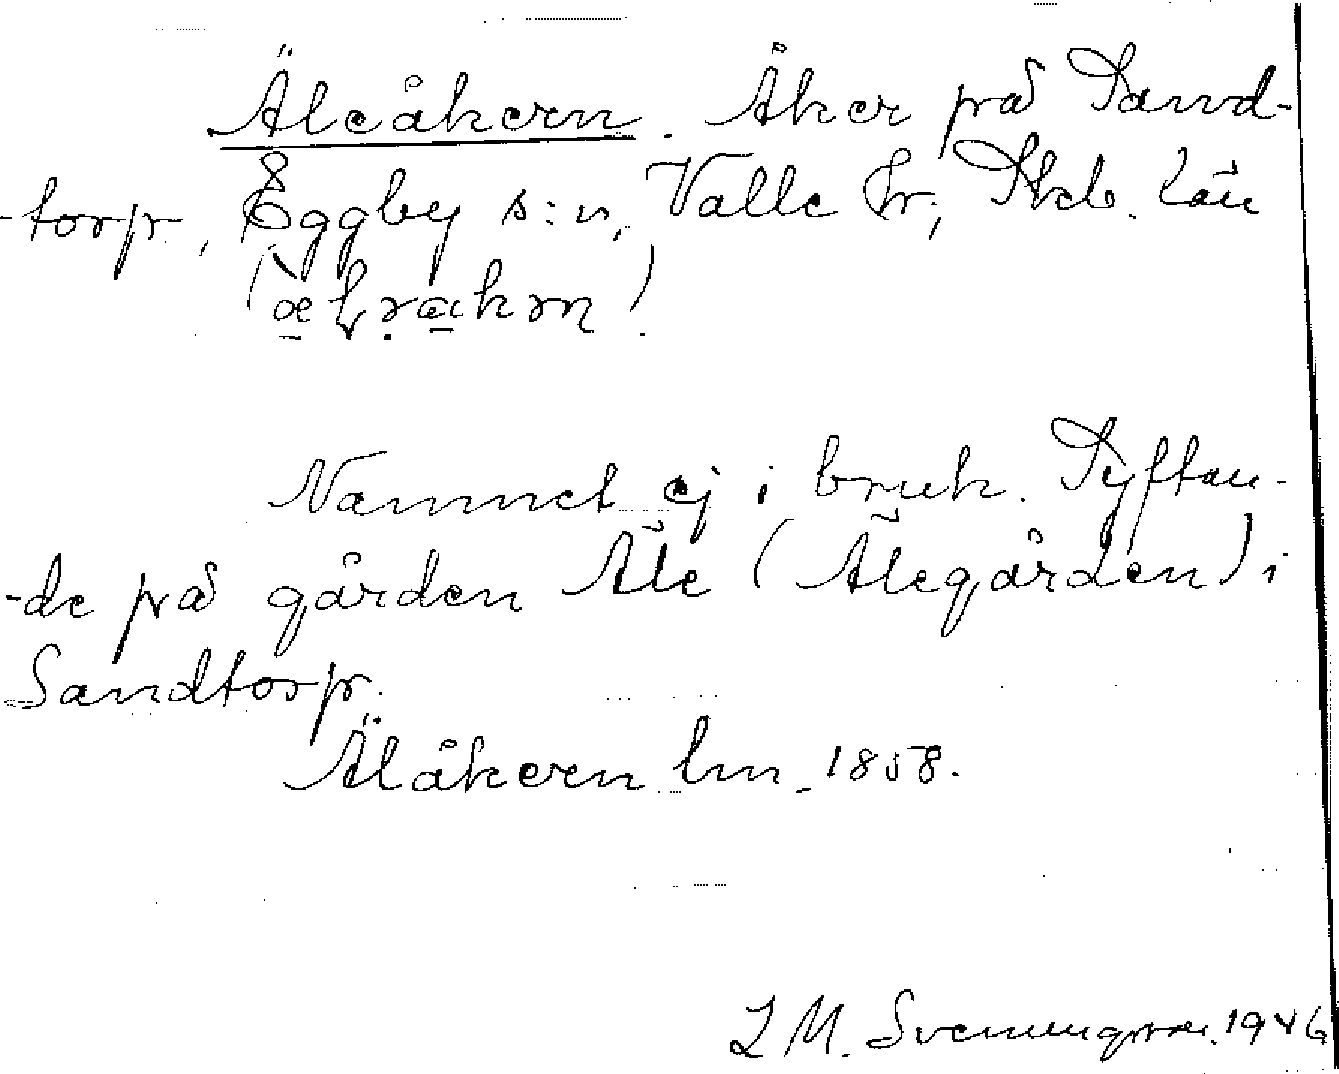 Äleåkern. Åker på Sand-
-torp, Eggby s:n, Valle hr, Skb. län

Namnet ej i bruk. Syftan-
-de på gården Äle (Älegården) i
Sandtorp.
Äläkern lm 1858.
L M. Svenungsson. 1946